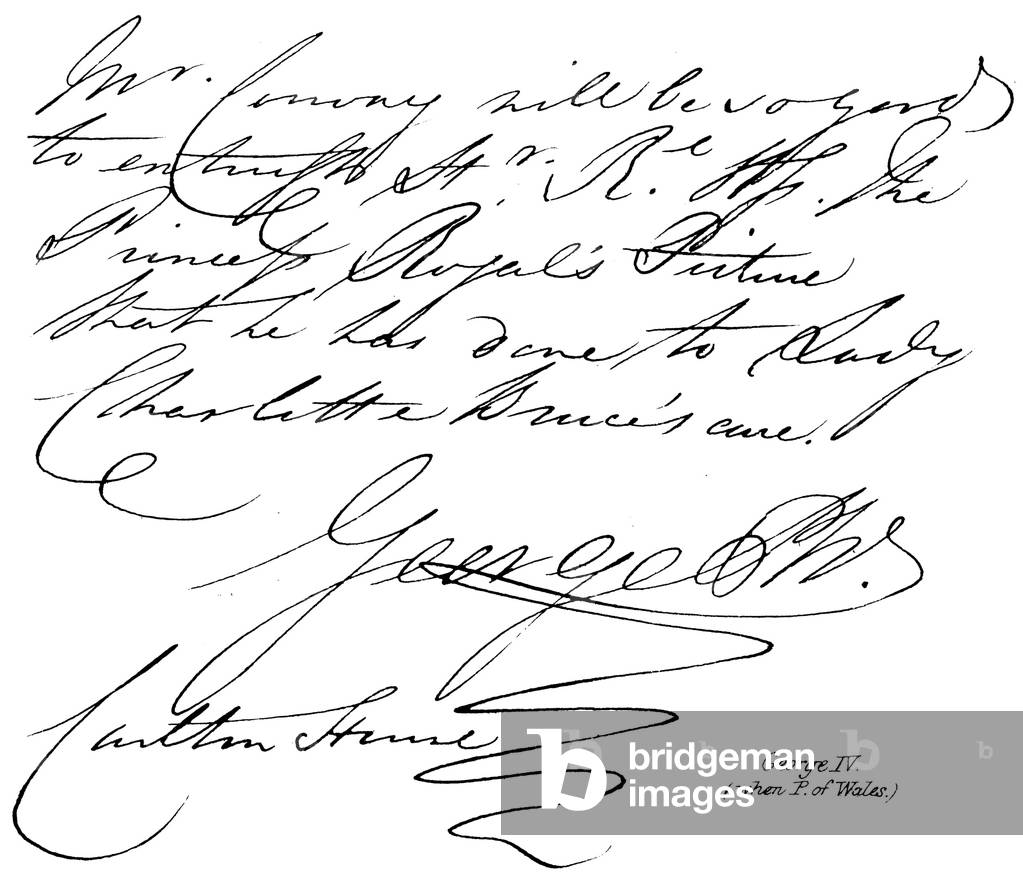 Mr. Conway will be so good
to entrust Hr. Rl. Hss. the
Princess Royal's Picture
that he has done to Lady
Charlotte Bruce's care.
George P.
Carlton House
George IV.
(when P. of Wales.)
bridgeman
images
b